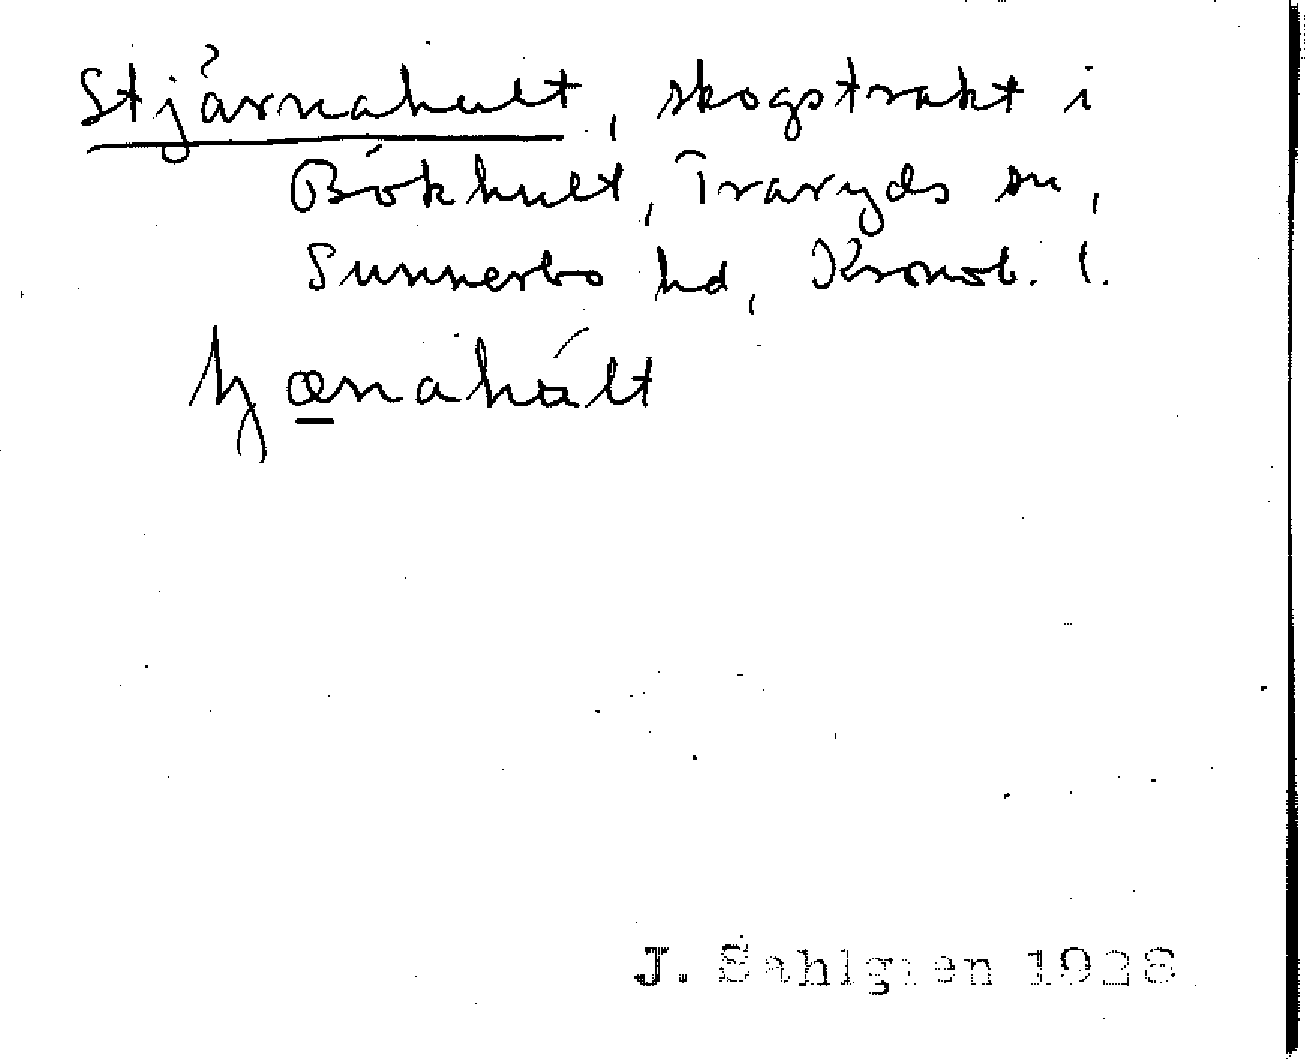 Stjärnahult, skogstrakt i
Bökhult, Traryds sn,
Sunnerbo hd, Kronob. l.
J. Sahlgren 1928